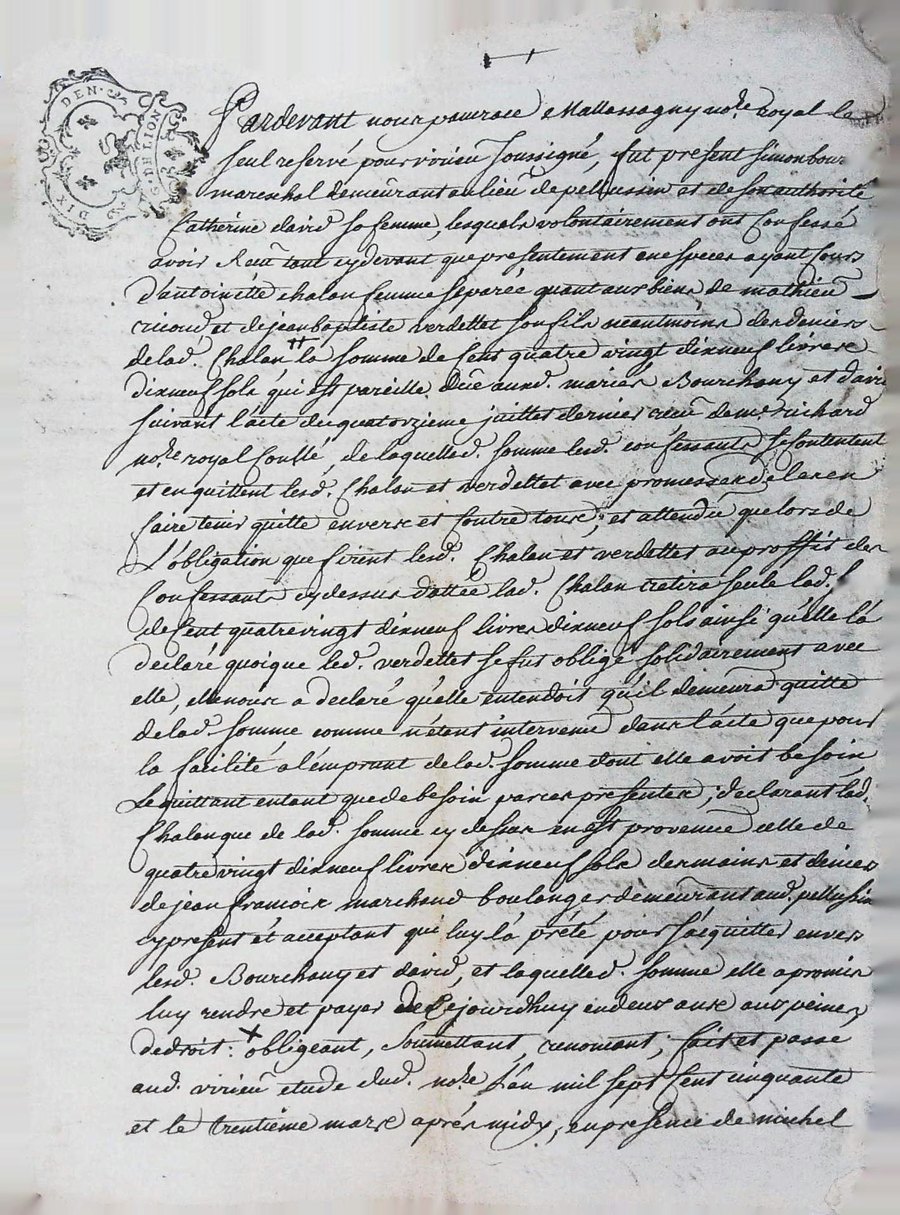 DIX DEN.
G. DE LION
Pardevant nous pancrace Mallassagny no.re Royal le
seul reservé pour virieu soussigné, fut present simon bour
marechal demeurant au lieu de pellussin et de son authorité
Catherine david sa femme, lesquels volontairement ont Confessé
avoir Receu tant cydevant que presentement en especes ayant Cours
d'antoinette chalan femme separée quant aux biens de mathieu
et de jean baptiste verdettet son fils neantmoins des deniers
de lad. Chalan la somme de Cent quatre vingt dixneuf livres
dixneuf sols qui est pareille Düe aud. mariés Bourchany et david
suivant l'acte du quatorzieme juillet dernier receu de me Richard
no.re royal Conllé de laquelled. somme lesd. confessants se Contentent
et en quittent lesd. Chalan et verdettet avec promesses de les en
faire tenir quitte envers et Contre tous; et attendu que lors de
L'obligation que firent lesd. Chalan et verdettet au proffit des
Confessants cydessus dattée lad. Chalan retira seule lad. s
de Cent quatre vingt dixneuf livres dixneuf sols ainsi qu'elle l'a
declaré quoique led. verdettet se fut obligé solidairement avec
elle, elle nous a declaré qu'elle entendoit qu'il demeura quitte
de lad. somme comme n'étent intervenu dans l'acte que pour
la facilité a l'emprunt de lad. somme dont elle avoit besoin
Le quittant entant que de besoin par ces presentes; declarant lad.
Chalan que de lad. somme cy dessus en est provenue celle de
quatre vingt dixneuf livres dixneuf sols des mains et deniers
de jean francois marchand boulanger demeurant aud. pellussin
cy present et acceptant qui luy la prété pour s'acquitter envers
lesd. Bourchany et david, et laquelled. somme elle a promis
luy rendre et payer de Cejourdhuy en deux ans aux peines
de droit: x obligeant, soumettant, renonçant, fait et passé
aud. virieu etude dud. no.re L'an mil sept Cent cinquante
et le trentième mars après midy, en presence de michel